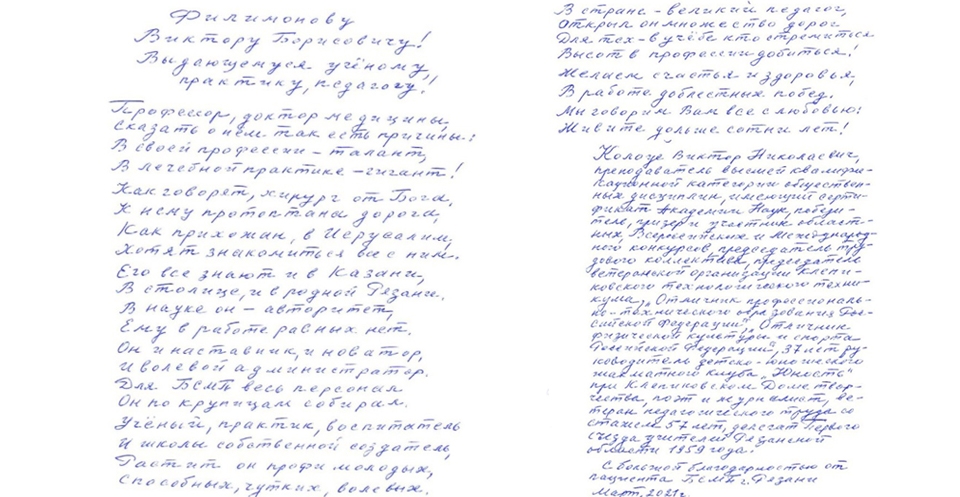 Филимонову
Виктору Борисовичу!
Выдающемуся учёному,
практику, педагогу!!
Профессор, доктор медицины,
Сказать о нём так есть причины:
В своей профессии – талант,
В лечебной практике – гигант!
Как говорят, хирург от Бога,
К нему протоптана дорога,
Как прихожан, в Иерусалим,
Хотят знакомиться все с ним.
Его все знают и в Казани,
В столице, и в родной Рязани.
В науке он – авторитет,
Ему в работе равных нет.
Он и наставник, и новатор,
И волевой администратор.
Для БСМП весь персонал
Он по крупицам собирал.
Учёный, практик, воспитатель
И школы собственной создатель,
Растит он профи молодых,
Способных, чутких, волевых.
В стране – великий педагог,
Открыл он множество дорог
Для тех – в учёбе кто стремится
Высот в профессии добиться!
Желаем счастья и здоровья,
В работе доблестных побед.
Мы говорим Вам все с любовью:
Живите дольше сотни лет!
Колозе Виктор Николаевич,
преподаватель высшей квалифи-
кационной категории обществен-
ных дисциплин, имеющий серти-
фикат Академии Наук, победи-
тель, призёр и участник областных,
Всероссийских и Международ-
ного конкурсов, председатель тру-
дового коллектива, председатель
ветеранской организации Клепи-
ковского технологического техни-
кума, „Отличник профессиональ-
но-технического образования Рос-
сийской Федерации", „Отличник
физической культуры и спорта
Российской Федерации", 37 лет ру-
ководитель детско-юношеского
шахматного клуба „Юность"
при Клепиковском Доме твор-
чества, поэт и журналист, ве-
теран педагогического труда со
стажем 57 лет, делегат Первого
съезда учителей Рязанской
области 1959 года.
С большой благодарностью от
пациента БСМП г. Рязани
Март 2021г.